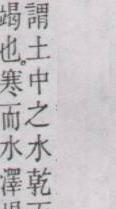 謂土中之水乾
竭也。寒而水澤